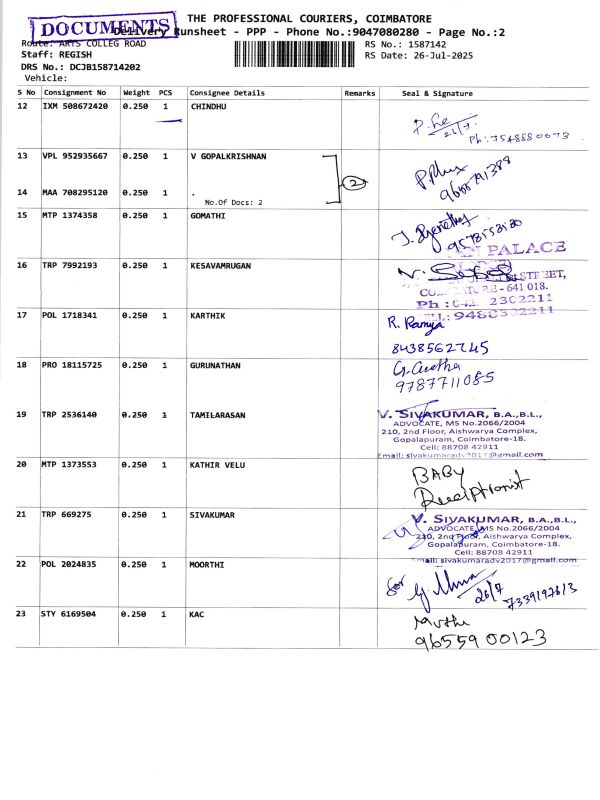 DOCUMENTS
THE PROFESSIONAL COURIERS, COIMBATORE
Delivery Runsheet - PPP - Phone No.:9047080280 - Page No.:2
Route: ARTS COLLEG ROAD
RS No.: 1587142
Staff: REGISH
RS Date: 26-Jul-2025
DRS No.: DCJB158714202
Vehicle:
S No Consignment No Weight PCS Consignee Details Remarks Seal & Signature
12 IXM 508672420 0.250 1 CHINDHU
26/7.
13 VPL 952935667 0.250 1 V GOPALKRISHNAN
2
14 MAA 708295120 0.250 1 .
No.Of Docs: 2
15 MTP 1374358 0.250 1 GOMATHI
PALACE
16 TRP 7992193 0.250 1 KESAVAMRUGAN
STREET,
641 018.
2302211
17 POL 1718341 0.250 1 KARTHIK
R. Ramya
8438562745
18 PRO 18115725 0.250 1 GURUNATHAN
9787711085
19 TRP 2536140 0.250 1 TAMILARASAN
V. SIVAKUMAR, B.A.,B.L.,
ADVOCATE, MS No.2066/2004
210, 2nd Floor, Aishwarya Complex,
Gopalapuram, Coimbatore-18.
Cell: 88708 42911
Email: sivakumaradv2017@gmail.com
20 MTP 1373553 0.250 1 KATHIR VELU
BABY
Receptionist
21 TRP 669275 0.250 1 SIVAKUMAR
V. SIVAKUMAR, B.A.,B.L.,
ADVOCATE, MS No.2066/2004
210, 2nd Floor, Aishwarya Complex,
Gopalapuram, Coimbatore-18.
Cell: 88708 42911
Email: sivakumaradv2017@gmail.com
22 POL 2024835 0.250 1 MOORTHI
for
26/7
23 STY 6169504 0.250 1 KAC
Muthu
96559 00123